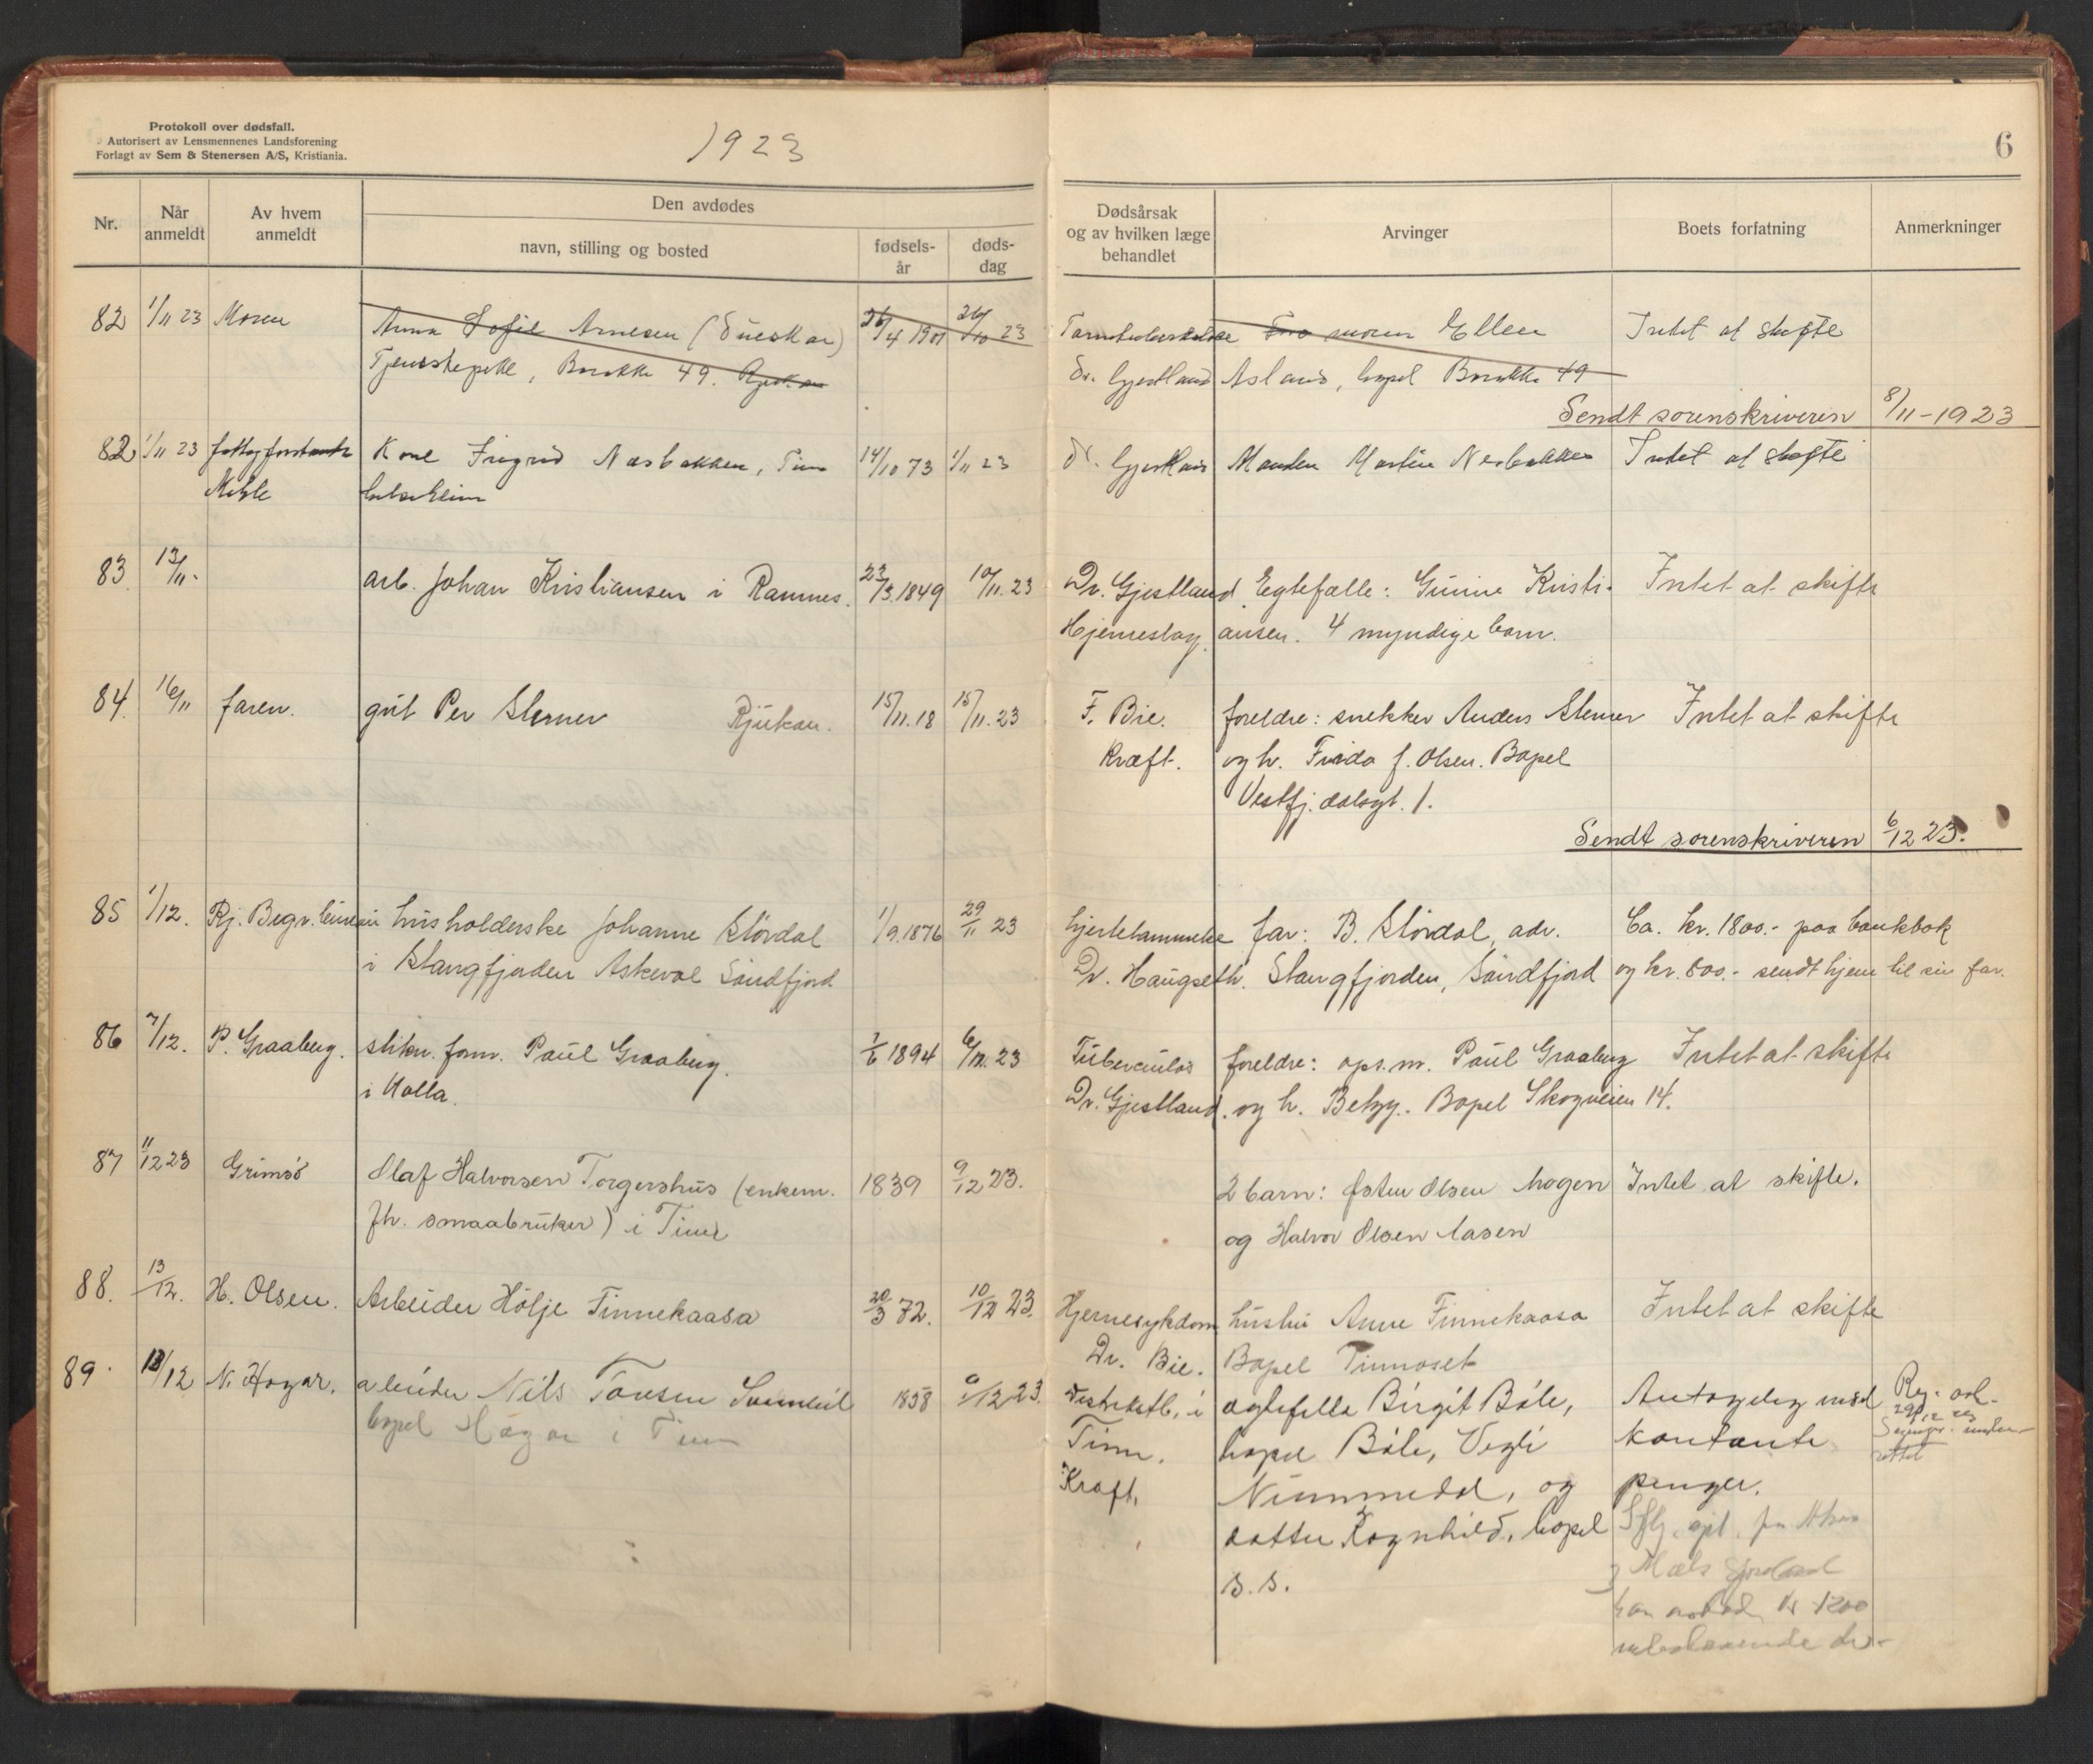 Protokoll over dødsfall.
Autorisert av Lensmennenes Landsforening
Forlagt av Sem & Stenersen A/S, Kristiania.
1923
6
Nr.
Når anmeldt
Av hvem anmeldt
Den avdødes
navn, stilling og bosted
fødsels-år
døds-dag
Dødsårsak og av hvilken læge behandlet
Arvinger
Boets forfatning
Anmerkninger
82 1/11 23 Moren Anna Sofie Arnesen 26/4 1901 26/10 23 moren Ellen Intet at skifte
Barakke 49. Rjukan Dr. Gjestland Barakke 49
Sendt sorenskriveren 8/11-1923
82 1/11 23 Kone Ingrid Næsbakken, Tinn 14/10 73 1/11 23 Dr. Gjestland Manden Martin Nesbakken Intet at skifte
83 13/11. arb. Johan Kristiansen i Ramnes. 23/3.1849 10/11.23 Dr. Gjestland Egtefælle: Gunine Kristi- Intet at skifte
Hjerneslag. ansen. 4 myndige barn.
84. 16/11 faren. gut Per Sterner Rjukan. 15/11.18 15/11.23 F. Bie. foreldre: snekker Anders Sterner Intet at skifte
Kræft. og h. Frida f. Olsen. Bopel
Vestfj.dalsgt. 1.
Sendt sorenskriveren 6/12 23.
85 1/12. Rj. Begr. bureau husholderske Johanne Stördal 1/9.1876 29/11 23 Hjertelammelse far: B. Stördal, adr. Ca. kr. 1800.- paa bankbok
i Stangfjorden Askevol Söndfjord Dr. Haugseth. Stangfjorden, Söndfjord og kr. 800.- sendt hjem til sin far.
86 7/12. P. Graaberg. stikn. form. Paul Graaberg. 7/6 1894 6/12.23 Tuberculos foreldre: ops.m. Paul Graaberg Intet at skifte
i Holla. Dr. Gjestland. og h. Betzy. Bopel Skogveien 14.
87 11/12 23 Grimsö Olaf Halvorsen Torgershus (enkem. 1839 9/12 23. 2 barn: Østen Olsen Mogen Intet at skifte.
fh. smaabruker) i Tinn og Halvor Olsen Aasen
88. 13/12. H. Olsen. Arbeider Hölje Tinnekaasa 20/3 72. 10/12 23. Hjernesykdom hustru Anne Tinnekaasa Intet at skifte
Dr. Bie. Bopel Tinnoset
89. 13/12 N. Hogar. arbeider Nils Tovsen 1858 12 23. Distriktsl. i egtefelle Birgit Båle, Antagelig med
bopel Hogar i Tinn Tinn. bopel Båle, Vegli kontante
Kraft. Nummedal, og penger.
datter Ragnhild, bopel
s. s.